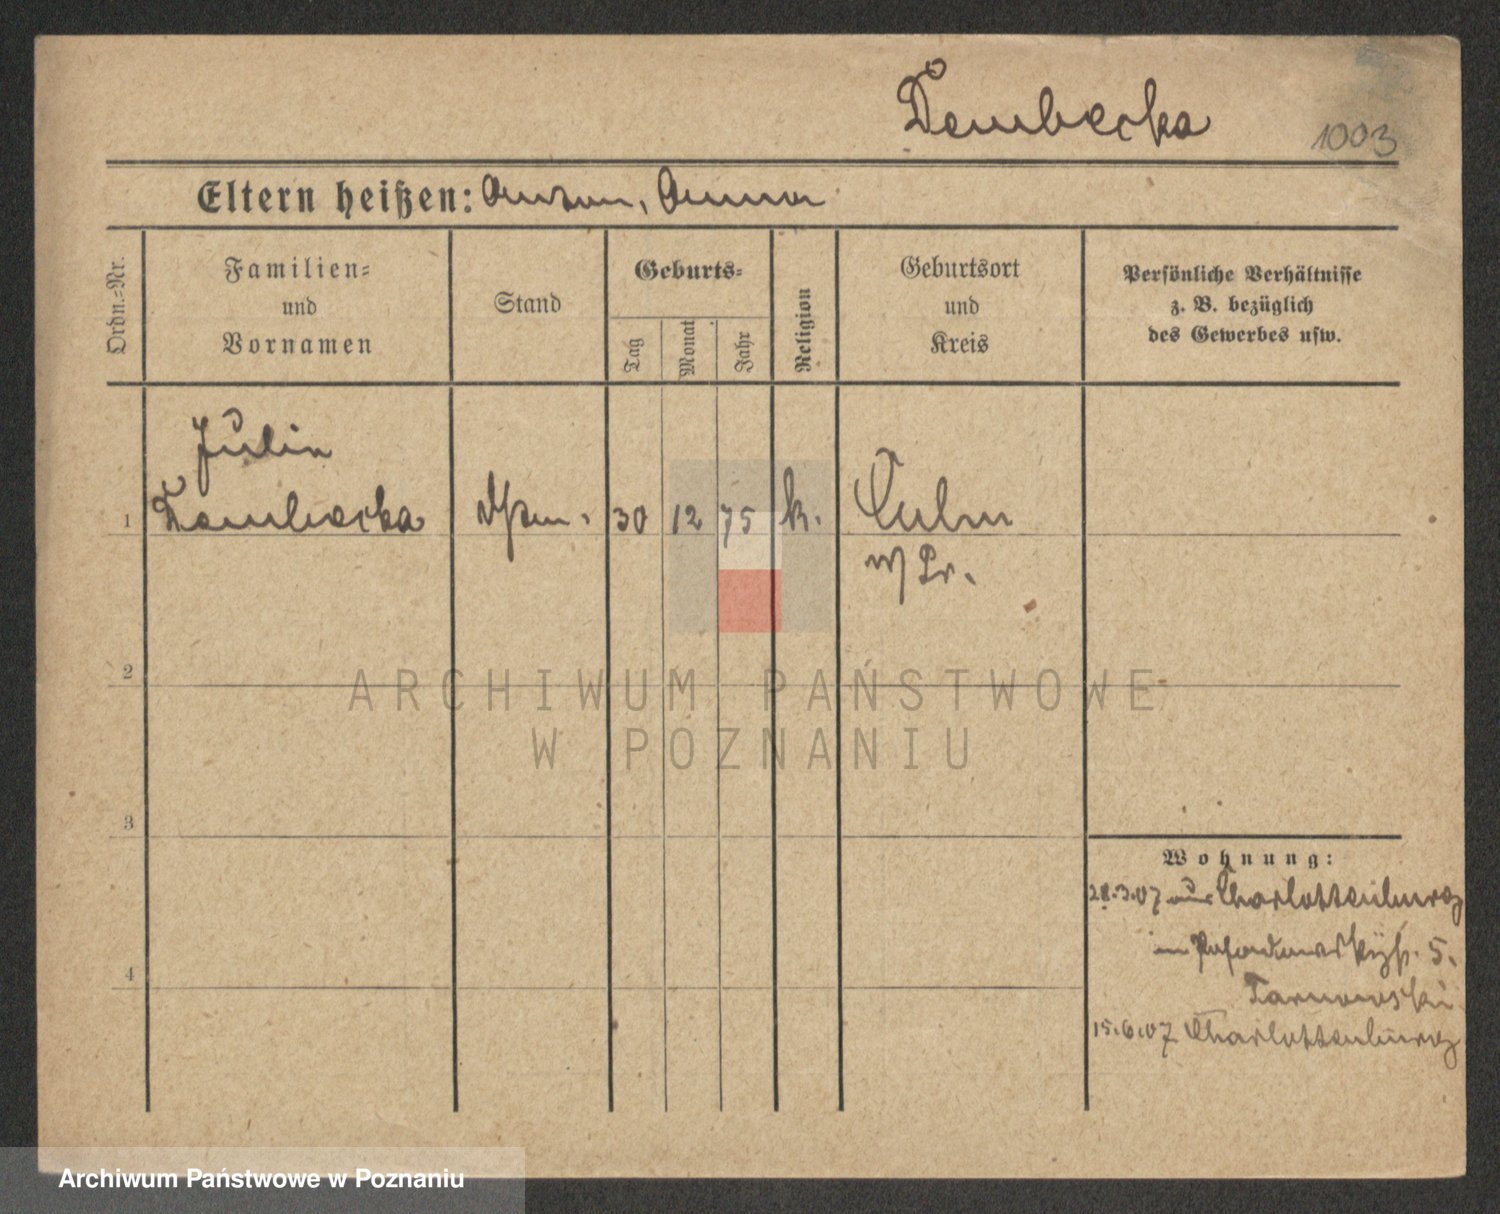 Dembecka
1003
Eltern heißen: Anton, Anna
Ordn.=Nr.
Familien=
und
Vornamen
Stand
Geburts=
Tag
Monat
Jahr
Religion
Geburtsort
und
Kreis
Persönliche Verhältnisse
z. B. bezüglich
des Gewerbes usw.
Julia
1 Dembecka 30 12 75 k. Culm
w/Pr.
2
ARCHIWUM PAŃSTWOWE
W POZNANIU
3
Wohnung:
28.3.07 aus Charlottenburg
5.
Tarnowski
4
15.6.07 Charlottenburg
Archiwum Państwowe w Poznaniu